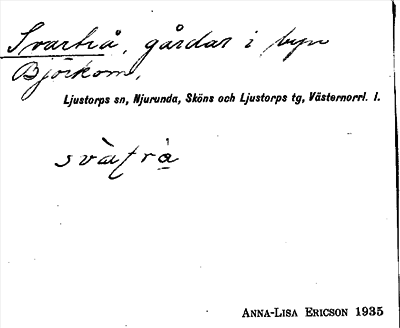 Svartrå, gårdar i byn
Björkom,
Ljustorps sn, Njurunda, Sköns och Ljustorps tg, Västernorrl. l.
ANNA-LISA ERICSON 1935